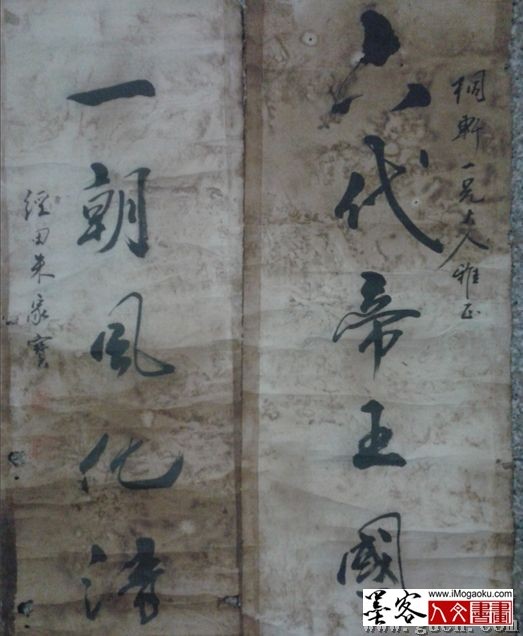 桐軒一兄大人雅正
六代帝王國
一朝風化清
經田朱家寶
墨客
人文書畫
www.iMogaoku.com